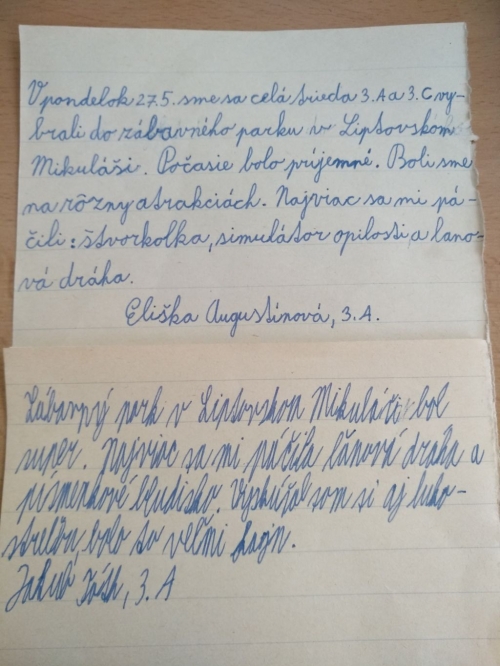 V pondelok 27.5. sme sa celá trieda 3.A a 3.C vy-
brali do zábavného parku v Liptovskom
Mikuláši. Počasie bolo príjemné. Boli sme
na rôzny atrakciách. Najviac sa mi pá-
čili: štvorkolka, simulátor opilosti a lano-
vá dráha.
Eliška Augustínová, 3.A.
Zábavný park v Liptovskom Mikuláši bol
super. Najviac sa mi páčila lánová dráha a
písmenkové bludisko. Vyskúšal som si aj luko-
streľbu, bolo to veľmi fajn.
Jakub Tóth, 3.A